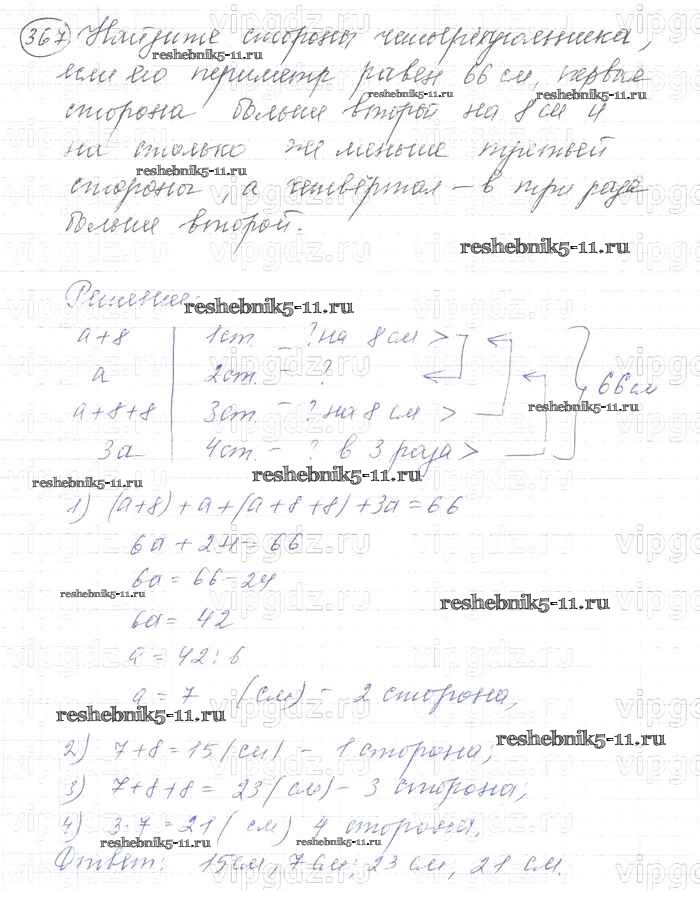 367 Найдите стороны четырёхугольника,
reshebnik5-11.ru
если его периметр равен 66 см, первая
reshebnik5-11.ru reshebnik5-11.ru
сторона больше второй на 8 см и
на столько же меньше третьей
reshebnik5-11.ru
стороны, а четвёртая – в три раза
больше второй.
reshebnik5-11.ru
Решение:
reshebnik5-11.ru
a+8 | 1 ст. – ? на 8 см >
a | 2 ст. – ?
66 см
reshebnik5-11.ru
a+8+8 | 3 ст. – ? на 8 см >
3a | 4 ст. – ? в 3 раза >
reshebnik5-11.ru
reshebnik5-11.ru
1) (a+8)+a+(a+8+8)+3a=66
6a+24=66
6a=66-24
reshebnik5-11.ru
reshebnik5-11.ru
6a=42
a=42:6
a=7 (см) – 2 сторона,
reshebnik5-11.ru
reshebnik5-11.ru
2) 7+8=15 (см) – 1 сторона,
3) 7+8+8=23 (см) – 3 сторона;
4) 3·7=21 (см) 4 сторона.
reshebnik5-11.ru reshebnik5-11.ru
Ответ: 15 см, 7 см; 23 см, 21 см.
vipgdz.ru